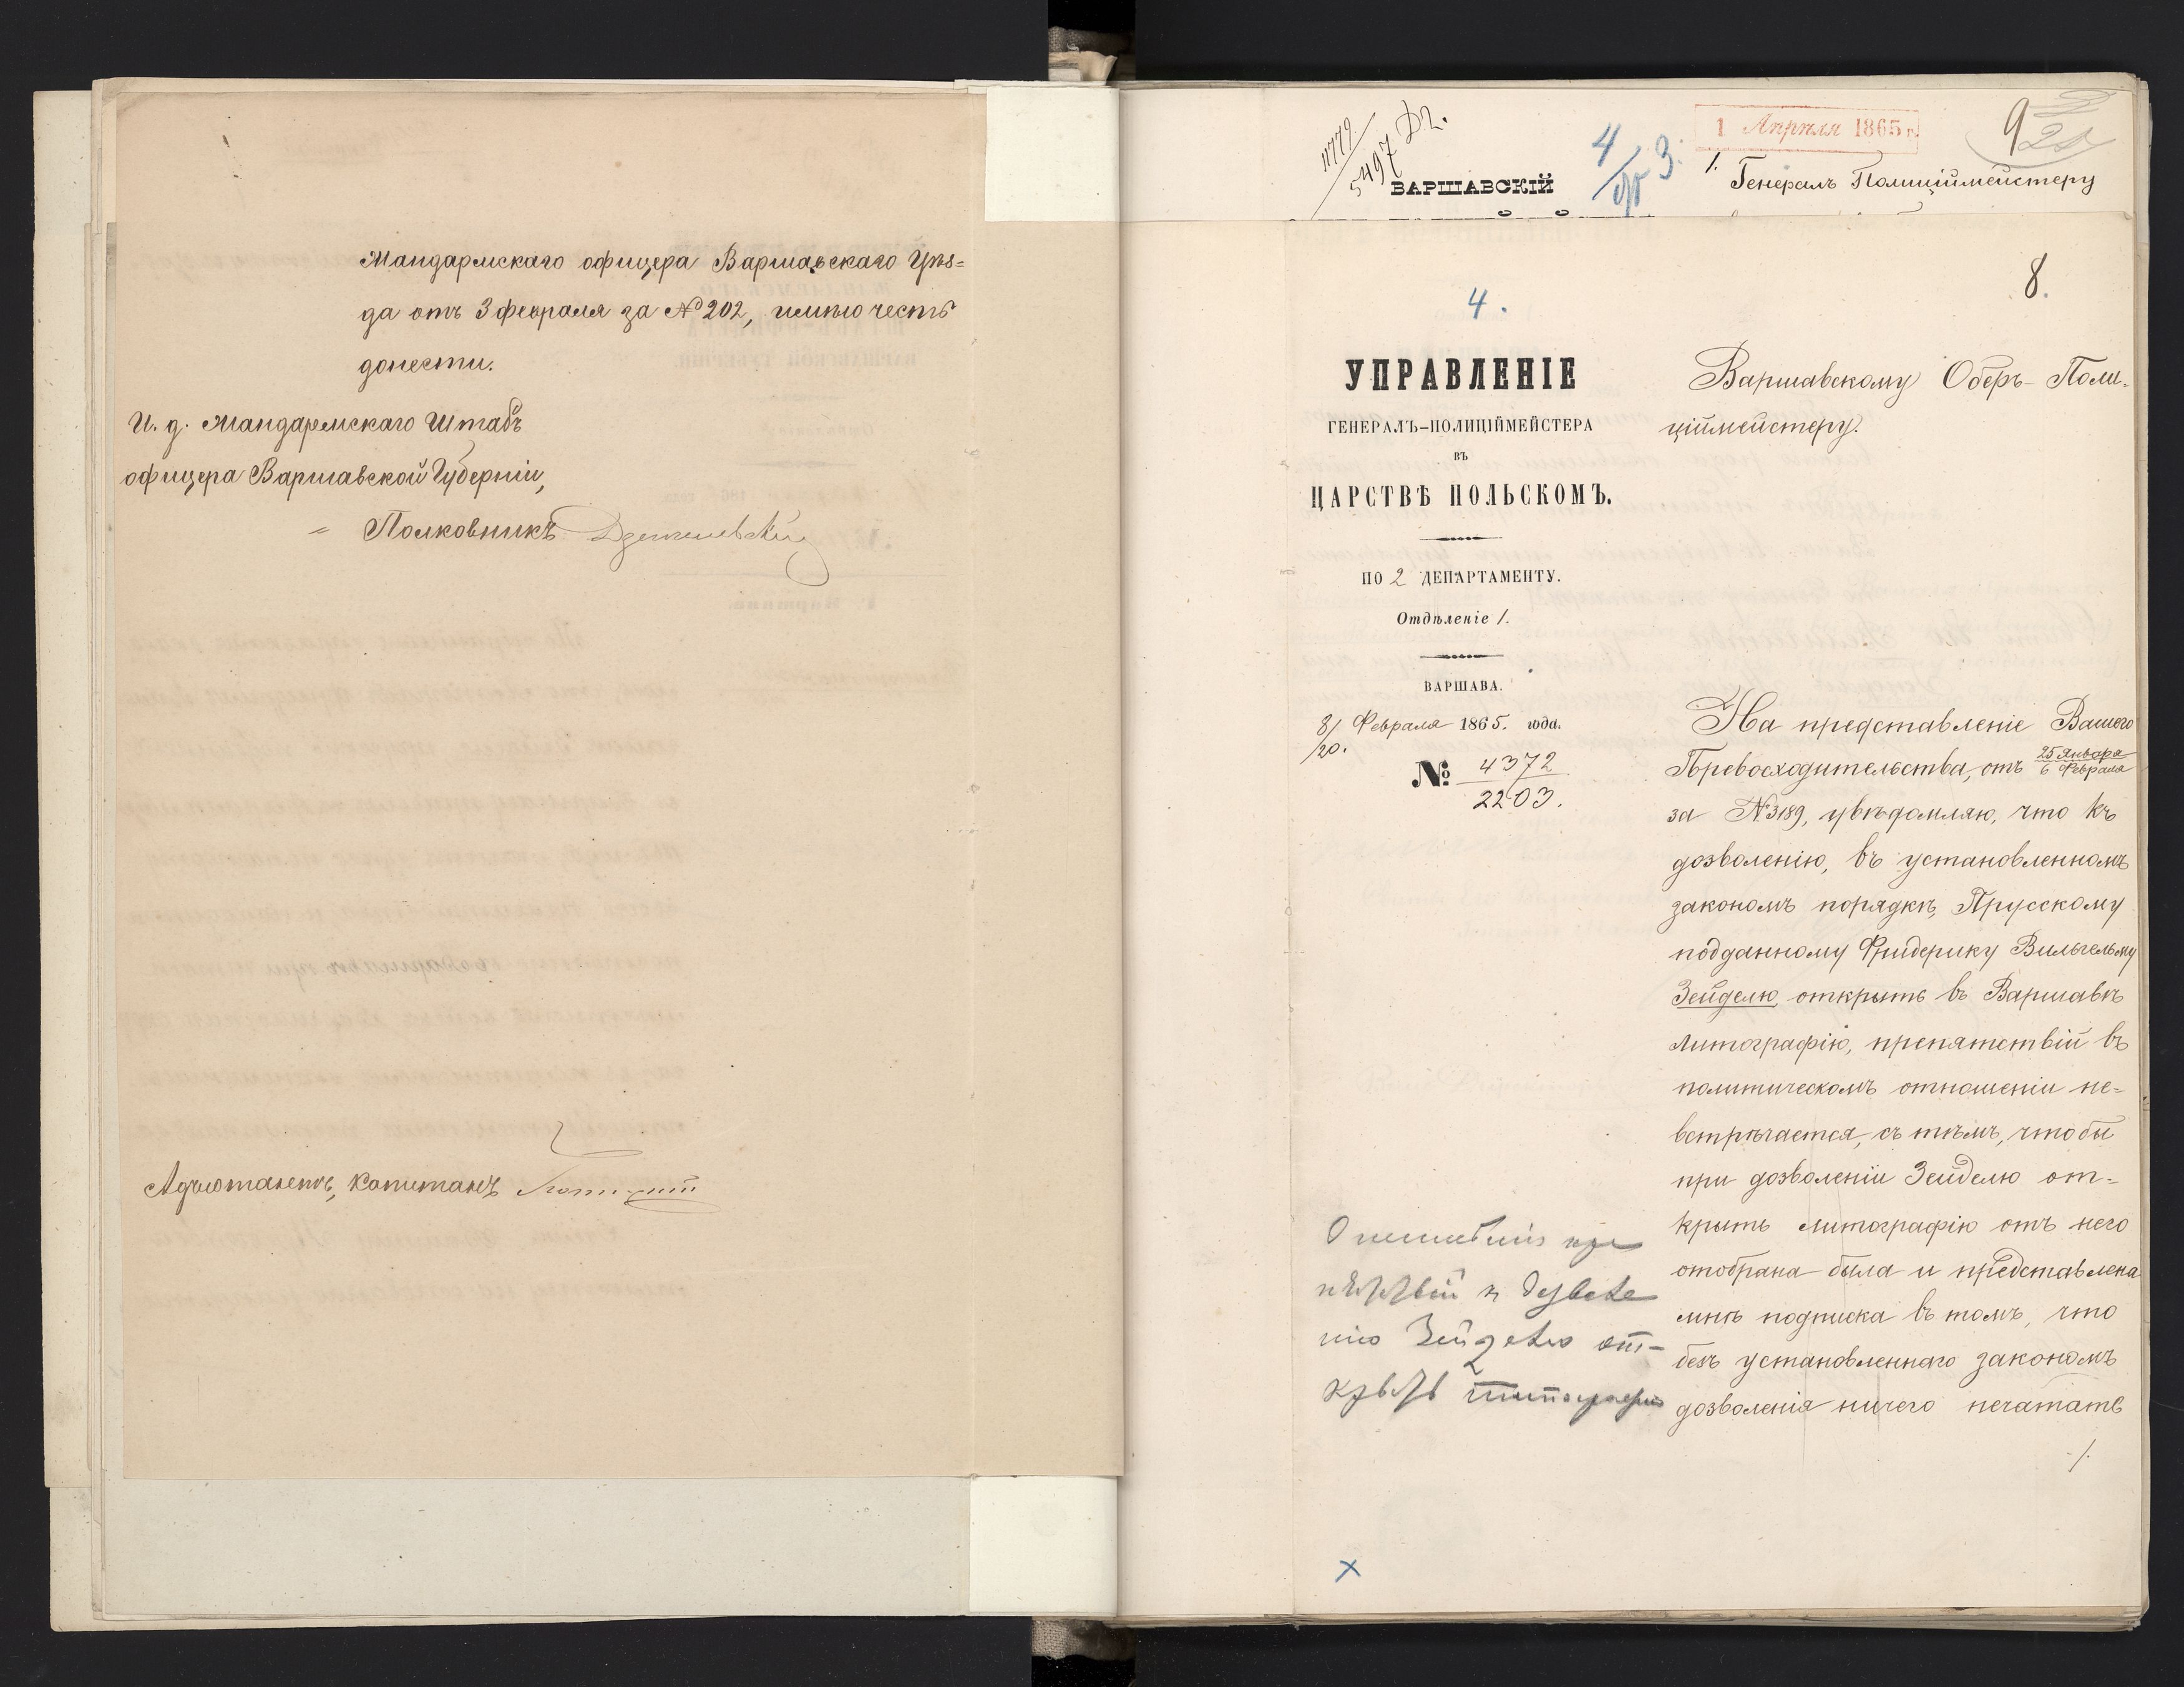 Жандармскаго офицера Варшавскаго Уѣз=
да отъ 3 февраля за № 202, имѣю честь
донести.
И. д. Жандармскаго Штабъ
офицера Варшавской Губерніи,
Полковникъ
Адъютантъ, Капитанъ
11779
5497 Д2.
4
3.
1 Апрѣля 1865 г.
9
ВАРШАВСКІЙ
1. Генералъ Полиціймейстеру
8.
4.
УПРАВЛЕНІЕ
ГЕНЕРАЛЪ-ПОЛИЦІЙМЕЙСТЕРА
ВЪ
ЦАРСТВѢ ПОЛЬСКОМЪ.
ПО 2 ДЕПАРТАМЕНТУ.
Отдѣленіе 1.
ВАРШАВА.
8/20. Февраля 1865. года.
№ 4372
2203.
Варшавскому Оберъ-Поли-
ціймейстеру.
На представленіе Вашего
Превосходительства, отъ 25 Января / 6 Февраля
за № 3189, увѣдомляю, что къ
дозволенію, въ установленномъ
закономъ порядкѣ, Прусскому
подданному Фридерику Вильгельму
Зейделю, открыть въ Варшавѣ
литографію, препятствій въ
политическомъ отношеніи не=
встрѣчается, съ тѣмъ, чтобы
при дозволеніи Зейделю от=
крыть литографію отъ него
отобрана была и представлена
мнѣ подписка въ томъ, что
безъ установленнаго закономъ
дозволенія ничего печатать
./.
О неимѣніи пре
пятствій к дозволе
нію Зейделю от-
крыть типографію
х